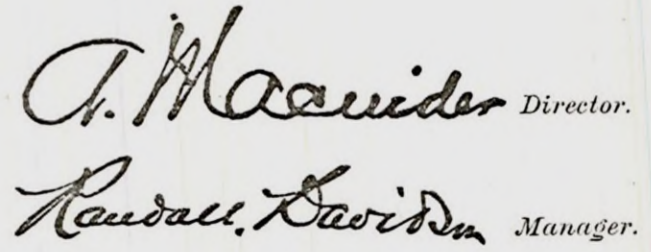 A. Macnider Director.
Randall Davidson Manager.